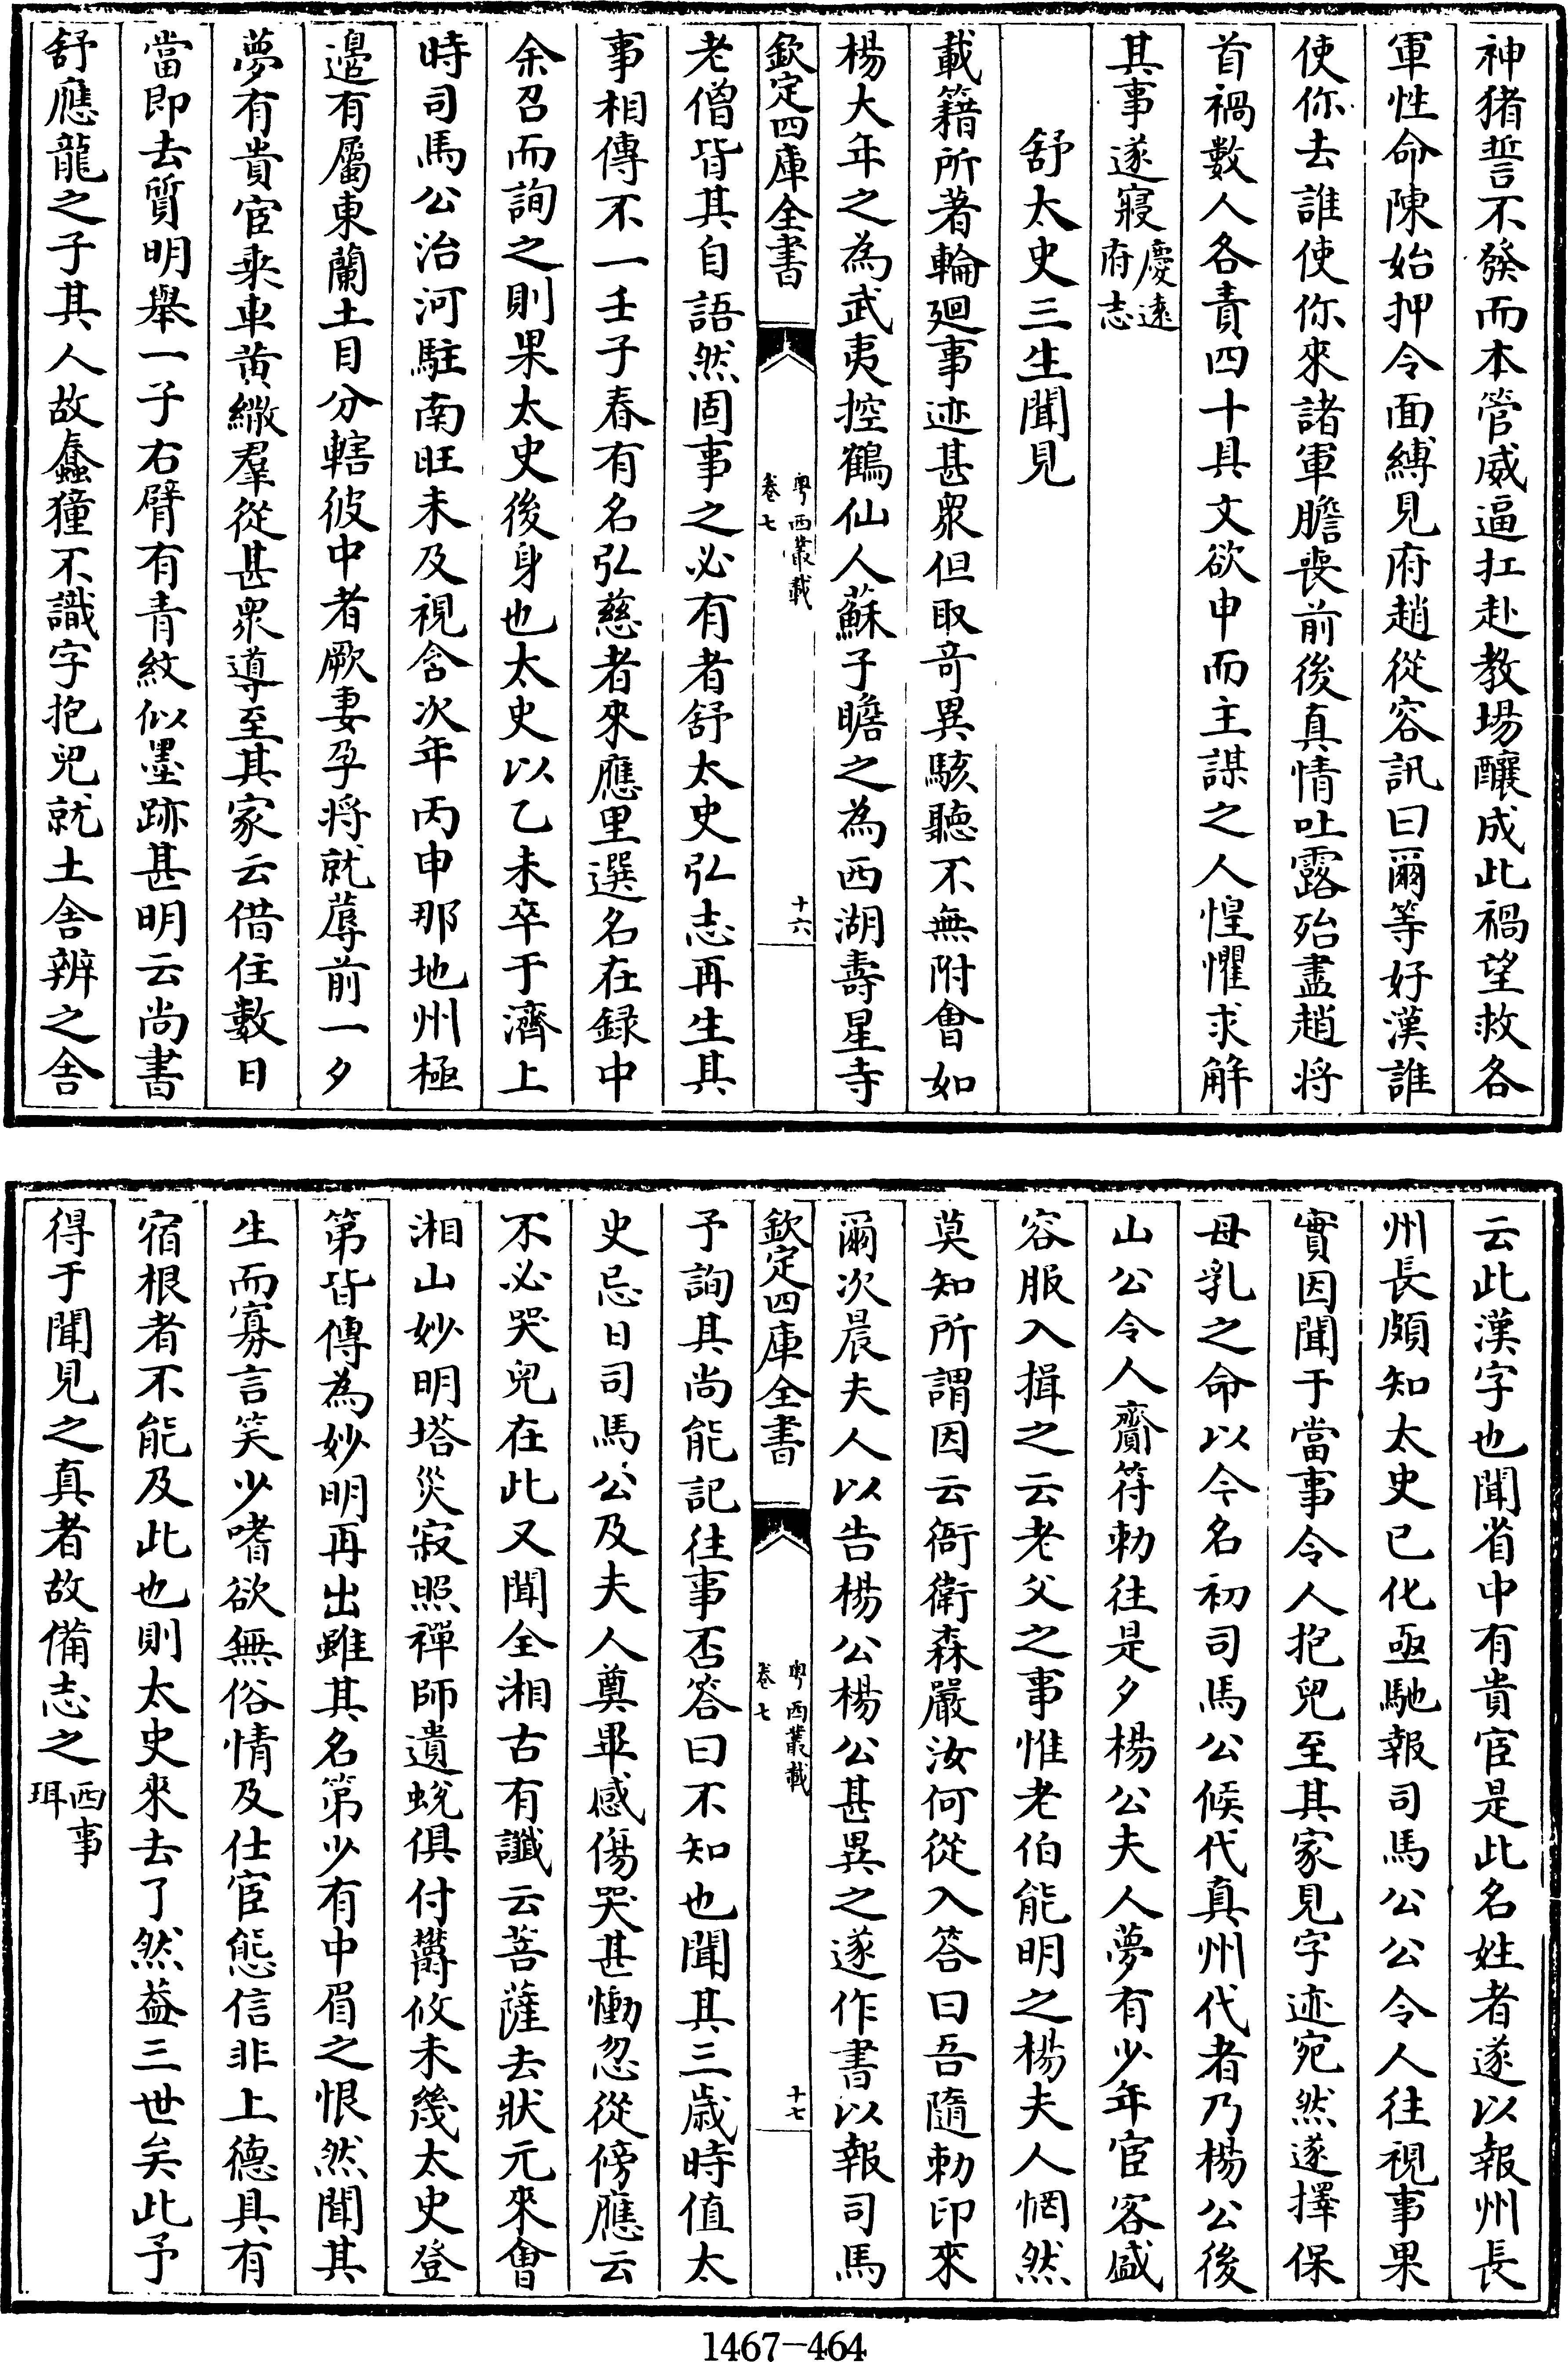 神猪誓不發而本管威逼扛赴教場釀成此禍望救各
軍性命陳始押令面縛見府趙從容訊曰爾等好漢誰
使你去誰使你來諸軍膽喪前後真情吐露殆盡趙将
首禍數人各責四十具文欲申而主謀之人惶懼求解
其事遂寢慶遠府志
舒太史三生聞見
載籍所著輪廻事迹甚衆但取奇異駭聽不無附會如
楊大年之為武夷控鶴仙人蘇子瞻之為西湖壽星寺
欽定四庫全書
粤西叢載
卷七
十六
老僧皆其自語然固事之必有者舒太史弘志再生其
事相傳不一壬子春有名弘慈者來應里選名在録中
余召而詢之則果太史後身也太史以乙未卒于濟上
時司馬公治河駐南旺未及視含次年丙申那地州極
邉有屬東蘭土目分轄彼中者厥妻孕将就蓐前一夕
夢有貴宦乘車黄繖羣從甚衆導至其家云借住數日
當即去質明舉一子右臂有青紋似墨跡甚明云尚書
舒應龍之子其人故蠢獞不識字抱兒就土舍辨之舍
云此漢字也聞省中有貴宦是此名姓者遂以報州長
州長頗知太史已化亟馳報司馬公公令人往視事果
實因聞于當事令人抱兒至其家見字迹宛然遂擇保
母乳之命以今名初司馬公候代真州代者乃楊公後
山公令人齎符勅往是夕楊公夫人夢有少年宦客盛
容服入揖之云老父之事惟老伯能明之楊夫人惘然
莫知所謂因云衙衛森嚴汝何從入答曰吾隨勅印來
爾次晨夫人以告楊公楊公甚異之遂作書以報司馬
欽定四庫全書
粤西叢載
卷七
十七
予詢其尚能記往事否答曰不知也聞其三歳時值太
史忌日司馬公及夫人奠畢感傷哭甚慟忽從傍應云
不必哭兒在此又聞全湘古有讖云菩薩去狀元來會
湘山妙明塔災寂照禪師遺蛻俱付鬱攸未幾太史登
第皆傳為妙明再出雖其名第少有中眉之恨然聞其
生而寡言笑少嗜欲無俗情及仕宦態信非上德具有
宿根者不能及此也則太史來去了然葢三世矣此予
得于聞見之真者故備志之西事珥
1467-464